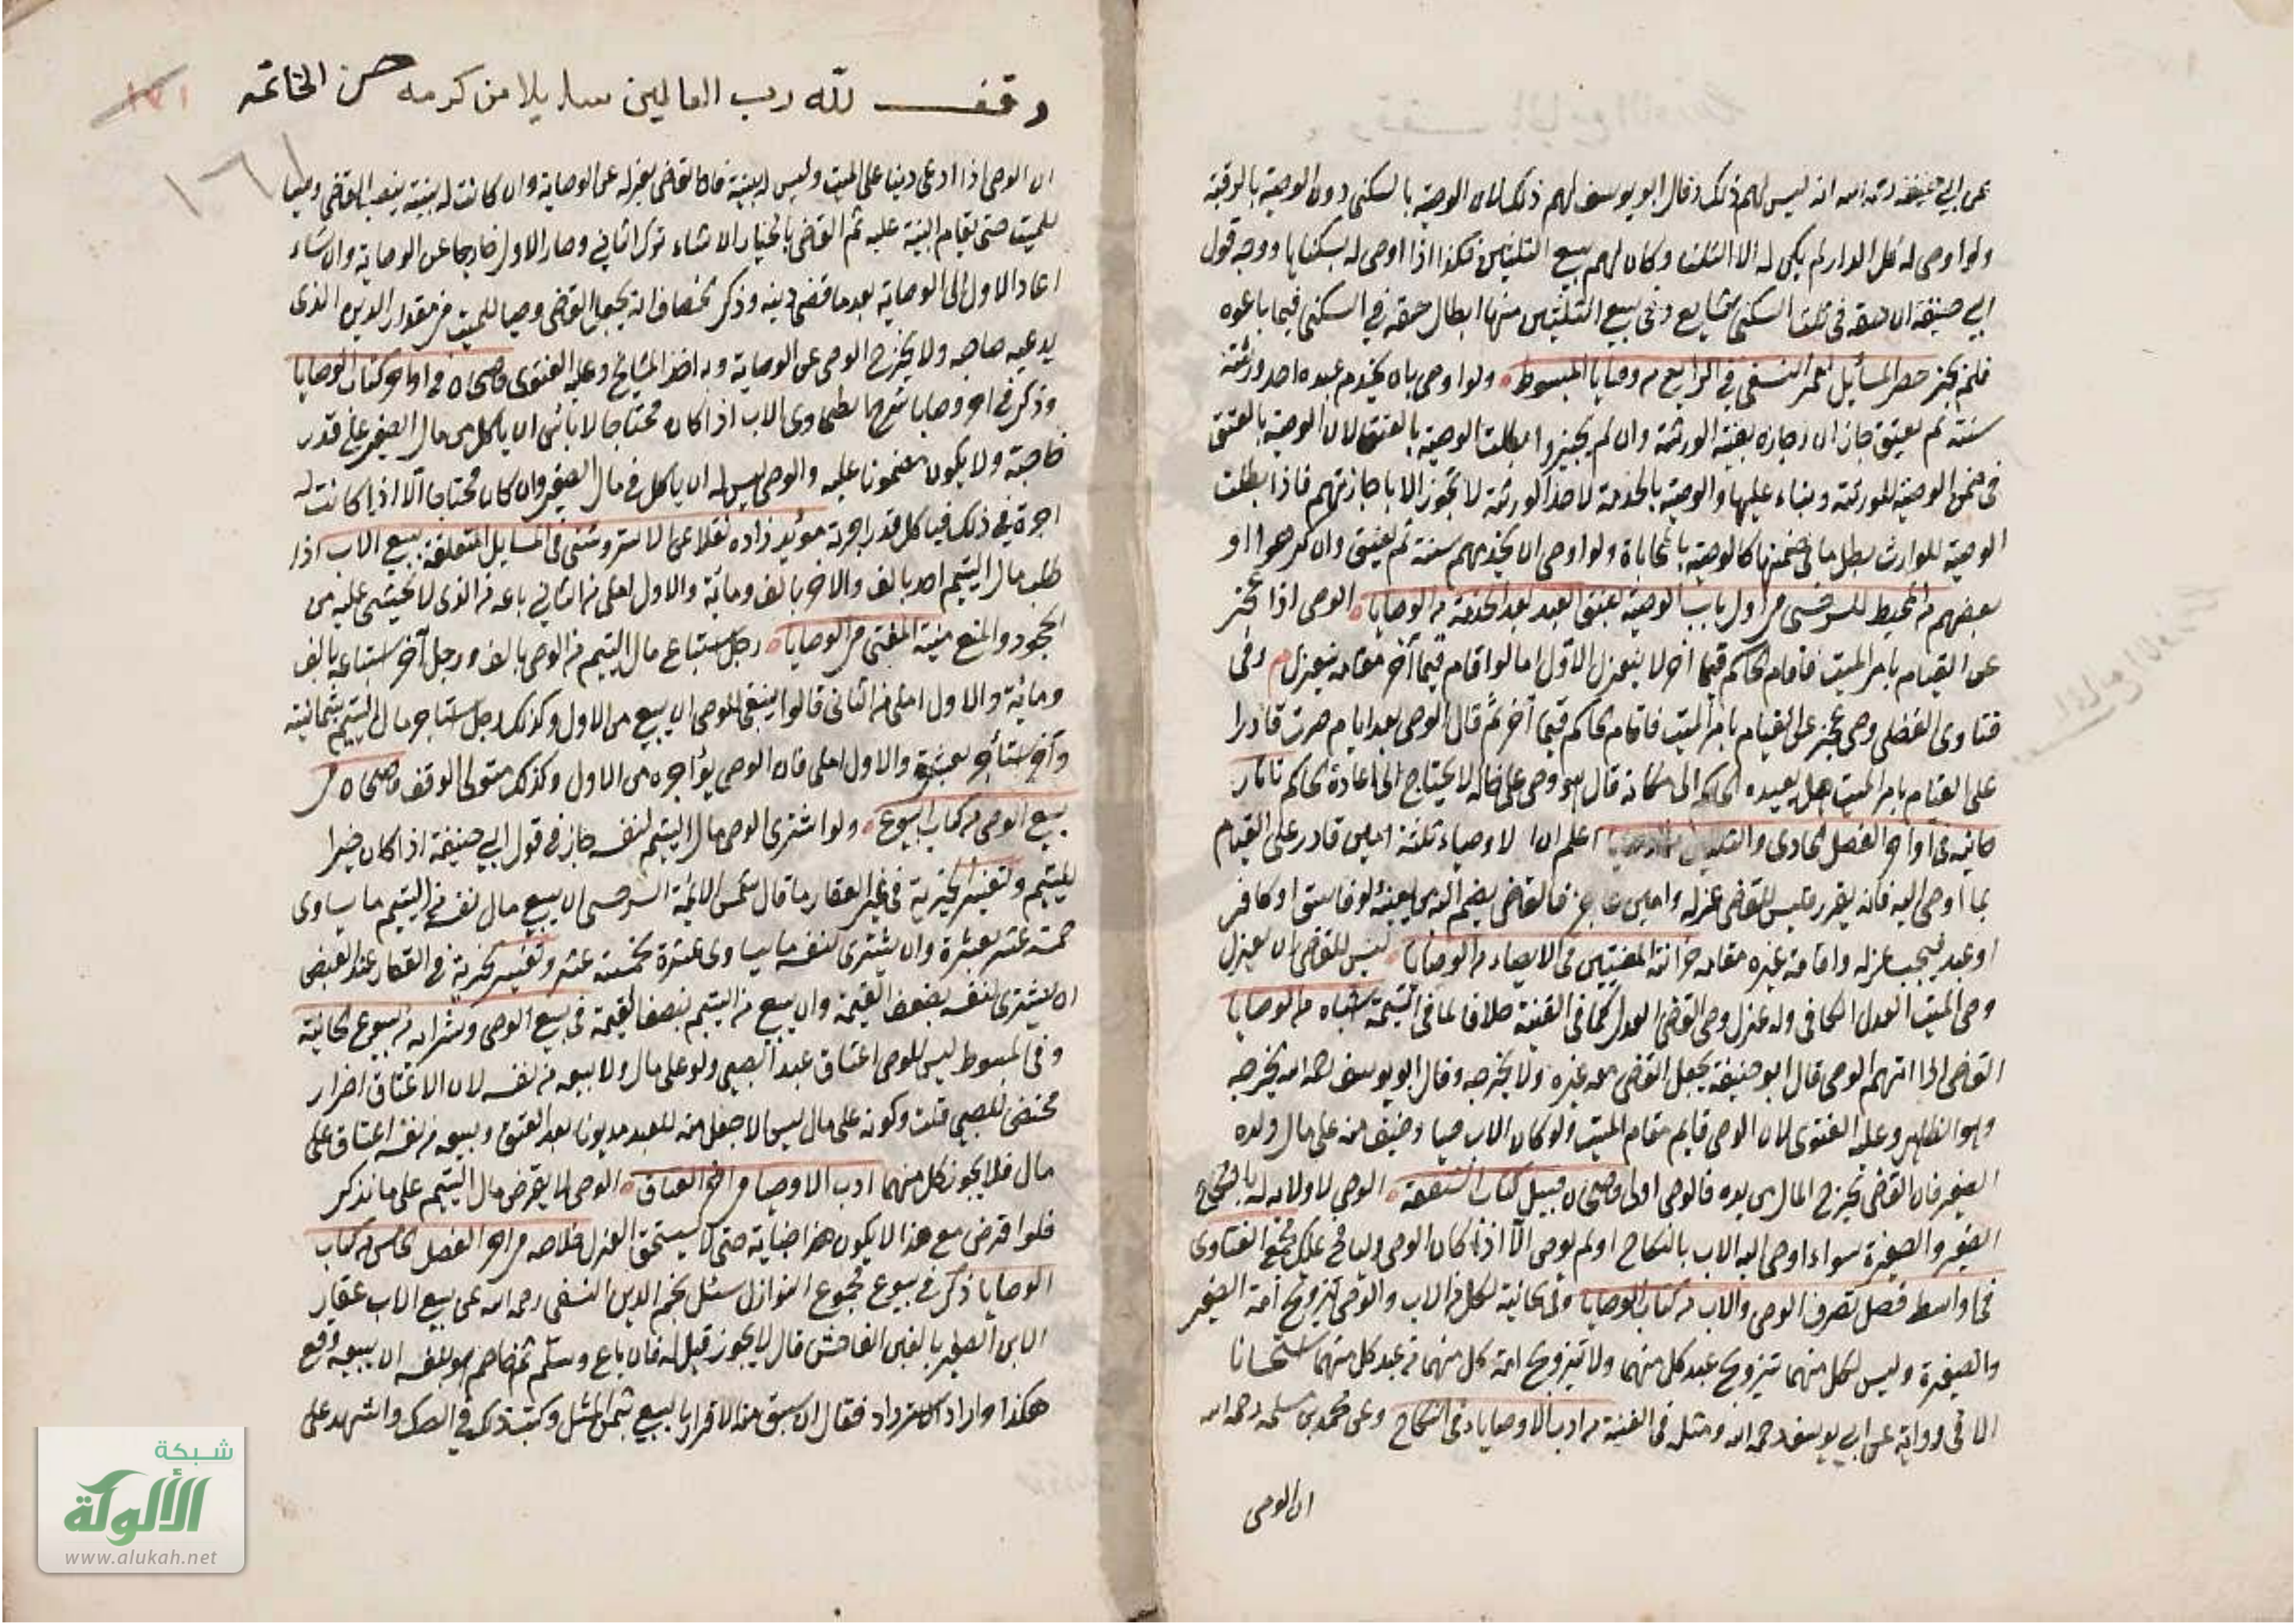 عن ابي حنيفة رحمه الله انه ليس لهم ذلك وقال ابو يوسف لهم ذلك لان الوصية بالسكنى دون الوصية بالرقبة
ولو اوصى له بكل الدار لم يكن له الا الثلث وكان لهم بيع الثلثين فكذا اذا اوصى له بسكناها ووجه قول
ابي حنيفة ان حقه في ثلث السكنى شايع وفي بيع الثلثين منها ابطال حقه في السكنى فيما باعوه
فلم يجز حصر المسائل لعمر النسفي في الرابع من وصايا المبسوط ولو اوصى بان يخدم عبده احد ورثته
سنة ثم يعتق جاز ان اجازه بقية الورثة وان لم يجيزوا بطلت الوصية بالعتق لان الوصية بالعتق
في ضمن الوصية للورثة وبناء عليها والوصية بالخدمة لاحد الورثة لا تجوز الا باجازتهم فاذا بطلت
الوصية للوارث بطل ما في ضمنها كالوصية بالمحاباة ولو اوصى ان يخدمهم سنة ثم يعتق وان كرهوا او
بعضهم من المحيط للسرخسي من اول باب الوصية بعتق العبد بعد الخدمة من الوصايا الوصي اذا عجز
عن القيام بامر الميت فاقام الحاكم قيما آخر لا ينعزل الاول اما لو اقام قيما آخر مقامه ينعزل م وفي
فتاوى الفضلي وصي عجز على القيام بامر الميت فاقام الحاكم قيما آخر ثم قال الوصي بعد ايام صرت قادرا
على القيام بامر الميت هل يعيده الحاكم الى مكانه قال هو وصي على حاله لا يحتاج الى اعادة الحاكم تاتار
خانيه في اواخر الفصل الحادي والثلثين من الوصايا اعلم ان الاوصياء ثلثة امين قادر على القيام
بما اوصى اليه فانه يقرر وليس للقاضي عزله وامين عاجز فالقاضي يضم اليه من يعينه وفاسق او كافر
او عبد فيجب عزله واقامة غيره مقامه خزانة المفتيين في الايصاء من الوصايا ليس للقاضي ان يعزل
وصي الميت العدل الكافي وله عزل وصي القاضي العدل كما في القنية خلافا لما في اليتيمة اشباه من الوصايا
القاضي اذا اتهم الوصي قال ابو حنيفة يجعل القاضي معه غيره ولا يخرجه وقال ابو يوسف رحمه الله يخرجه
وهو الظاهر وعليه الفتوى لان الوصي قايم مقام الميت ولو كان الاب حيا وخيف منه على مال ولده
الصغير فان القاضي يخرج المال من يده فالوصي اولى قاضيخان قبيل كتاب الشفعة الوصي لا ولاية له بانكاح
الصغير والصغيرة سواء اوصى اليه الاب بالنكاح او لم يوصي الا اذا كان الوصي وليا فح يملك مجمع الفتاوى
في اواسط فصل تصرف الوصي والاب من كتاب الوصايا وفي الخانية لكل من الاب والوصي تزويج امة الصغير
والصغيرة وليس لكل منهما تزويج عبد كل منهما ولا تزويج امة كل منهما من عبد كل منهما استحسانا
الا في رواية عن ابي يوسف رحمه الله ومثله في القنية من ادب الاوصياء في النكاح وعن محمد بن سلمه رحمه الله
ان الوصي
وقف لله رب العالمين سايلا من كرمه حسن الخاتمه
١٧١
١٦١
ان الوصي اذا ادعى دينا على الميت وليس له بينة فان القاضي يعزله عن الوصاية وان كانت له بينة ينصب القاضي وصيا
للميت حتى تقام البينة عليه ثم القاضي بالخيار ان شاء ترك الثاني وصار الاول خارجا عن الوصاية وان شاء
اعاد الاول الى الوصاية بعد ما قضى دينه وذكر الخصاف انه يجعل القاضي وصيا للميت في مقدار الدين الذي
يدعيه صاحبه ولا يخرج الوصي عن الوصاية وبه اخذ المشايخ وعليه الفتوى قاضيخان في اواخر كتاب الوصايا
وذكر في آخر وصايا شرح الطحاوي الاب اذا كان محتاجا لا بأس ان ياكل من مال الصغير على قدر
حاجته ولا يكون مضمونا عليه والوصي ليس له ان ياكل في مال الصغير وان كان محتاجا الا اذا كانت له
اجرة في ذلك فياكل قدر اجرته مؤيد زاده نقلا عن الاستروشني في المسايل المتعلقة ببيع الاب اذا
طلب مال اليتيم احد بالف والآخر بالف ومائة والاول املى من الثاني باعه من الذي لا يخشى عليه من
الجحود والمنع منية المفتي من الوصايا رجل استباع مال اليتيم من الوصي بالف ورجل آخر استباعه بالف
ومائة والاول املى من الثاني قالوا ينبغي للوصي ان يبيع من الاول وكذلك رجل استاجر مال اليتيم بثمانية
وآخر استأجر بعشرة والاول املى فان الوصي يؤاجره من الاول وكذلك متولي الوقف قاضيخان في
بيع الوصي من كتاب البيوع ولو اشترى الوصي مال اليتيم لنفسه جاز في قول ابي حنيفة اذا كان خيرا
لليتيم وتفسير الخيرية في غير العقار ما قال شمس الائمة السرخسي ان يبيع مال نفسه من اليتيم ما يساوي
خمسة عشر بعشرة وان يشتري لنفسه ما يساوي عشرة بخمسة عشر وتفسير الخيرية في العقار عند البعض
ان يشتري لنفسه بضعف القيمة وان يبيع من اليتيم بنصف القيمة في بيع الوصي وشرائه من بيوع الخانية
وفي المبسوط ليس للوصي اعتاق عبد الصبي ولو على مال ولا بيعه من نفسه لان الاعتاق اضرار
محض للصبي قلت وكونه على مال ليس الا جعل منه للعبد مديونا بعد العتق وبيعه من نفسه اعتاق على
مال فلا يجوز كل منهما ادب الاوصيا في العتاق الوصي لا يقرض مال اليتيم على ما نذكر
فلو اقرض مع هذا لا يكون هذا خيانة حتى لا يستحق العزل خلاصه في آخر الفصل الخامس من كتاب
الوصايا ذكر في بيوع مجموع النوازل سئل نجم الدين النسفي رحمه الله عن بيع الاب عقار
الابن الصغير بالغبن الفاحش قال لا يجوز قيل له فان باع وسلم ثم خاصم هو بنفسه ان بيعه وقع
هكذا واراد الاسترداد فقال ان سبق منه الاقرار بالبيع بثمن المثل وكتب ذلك في الصك واشهد على
شبكة
الألوكة
www.alukah.net